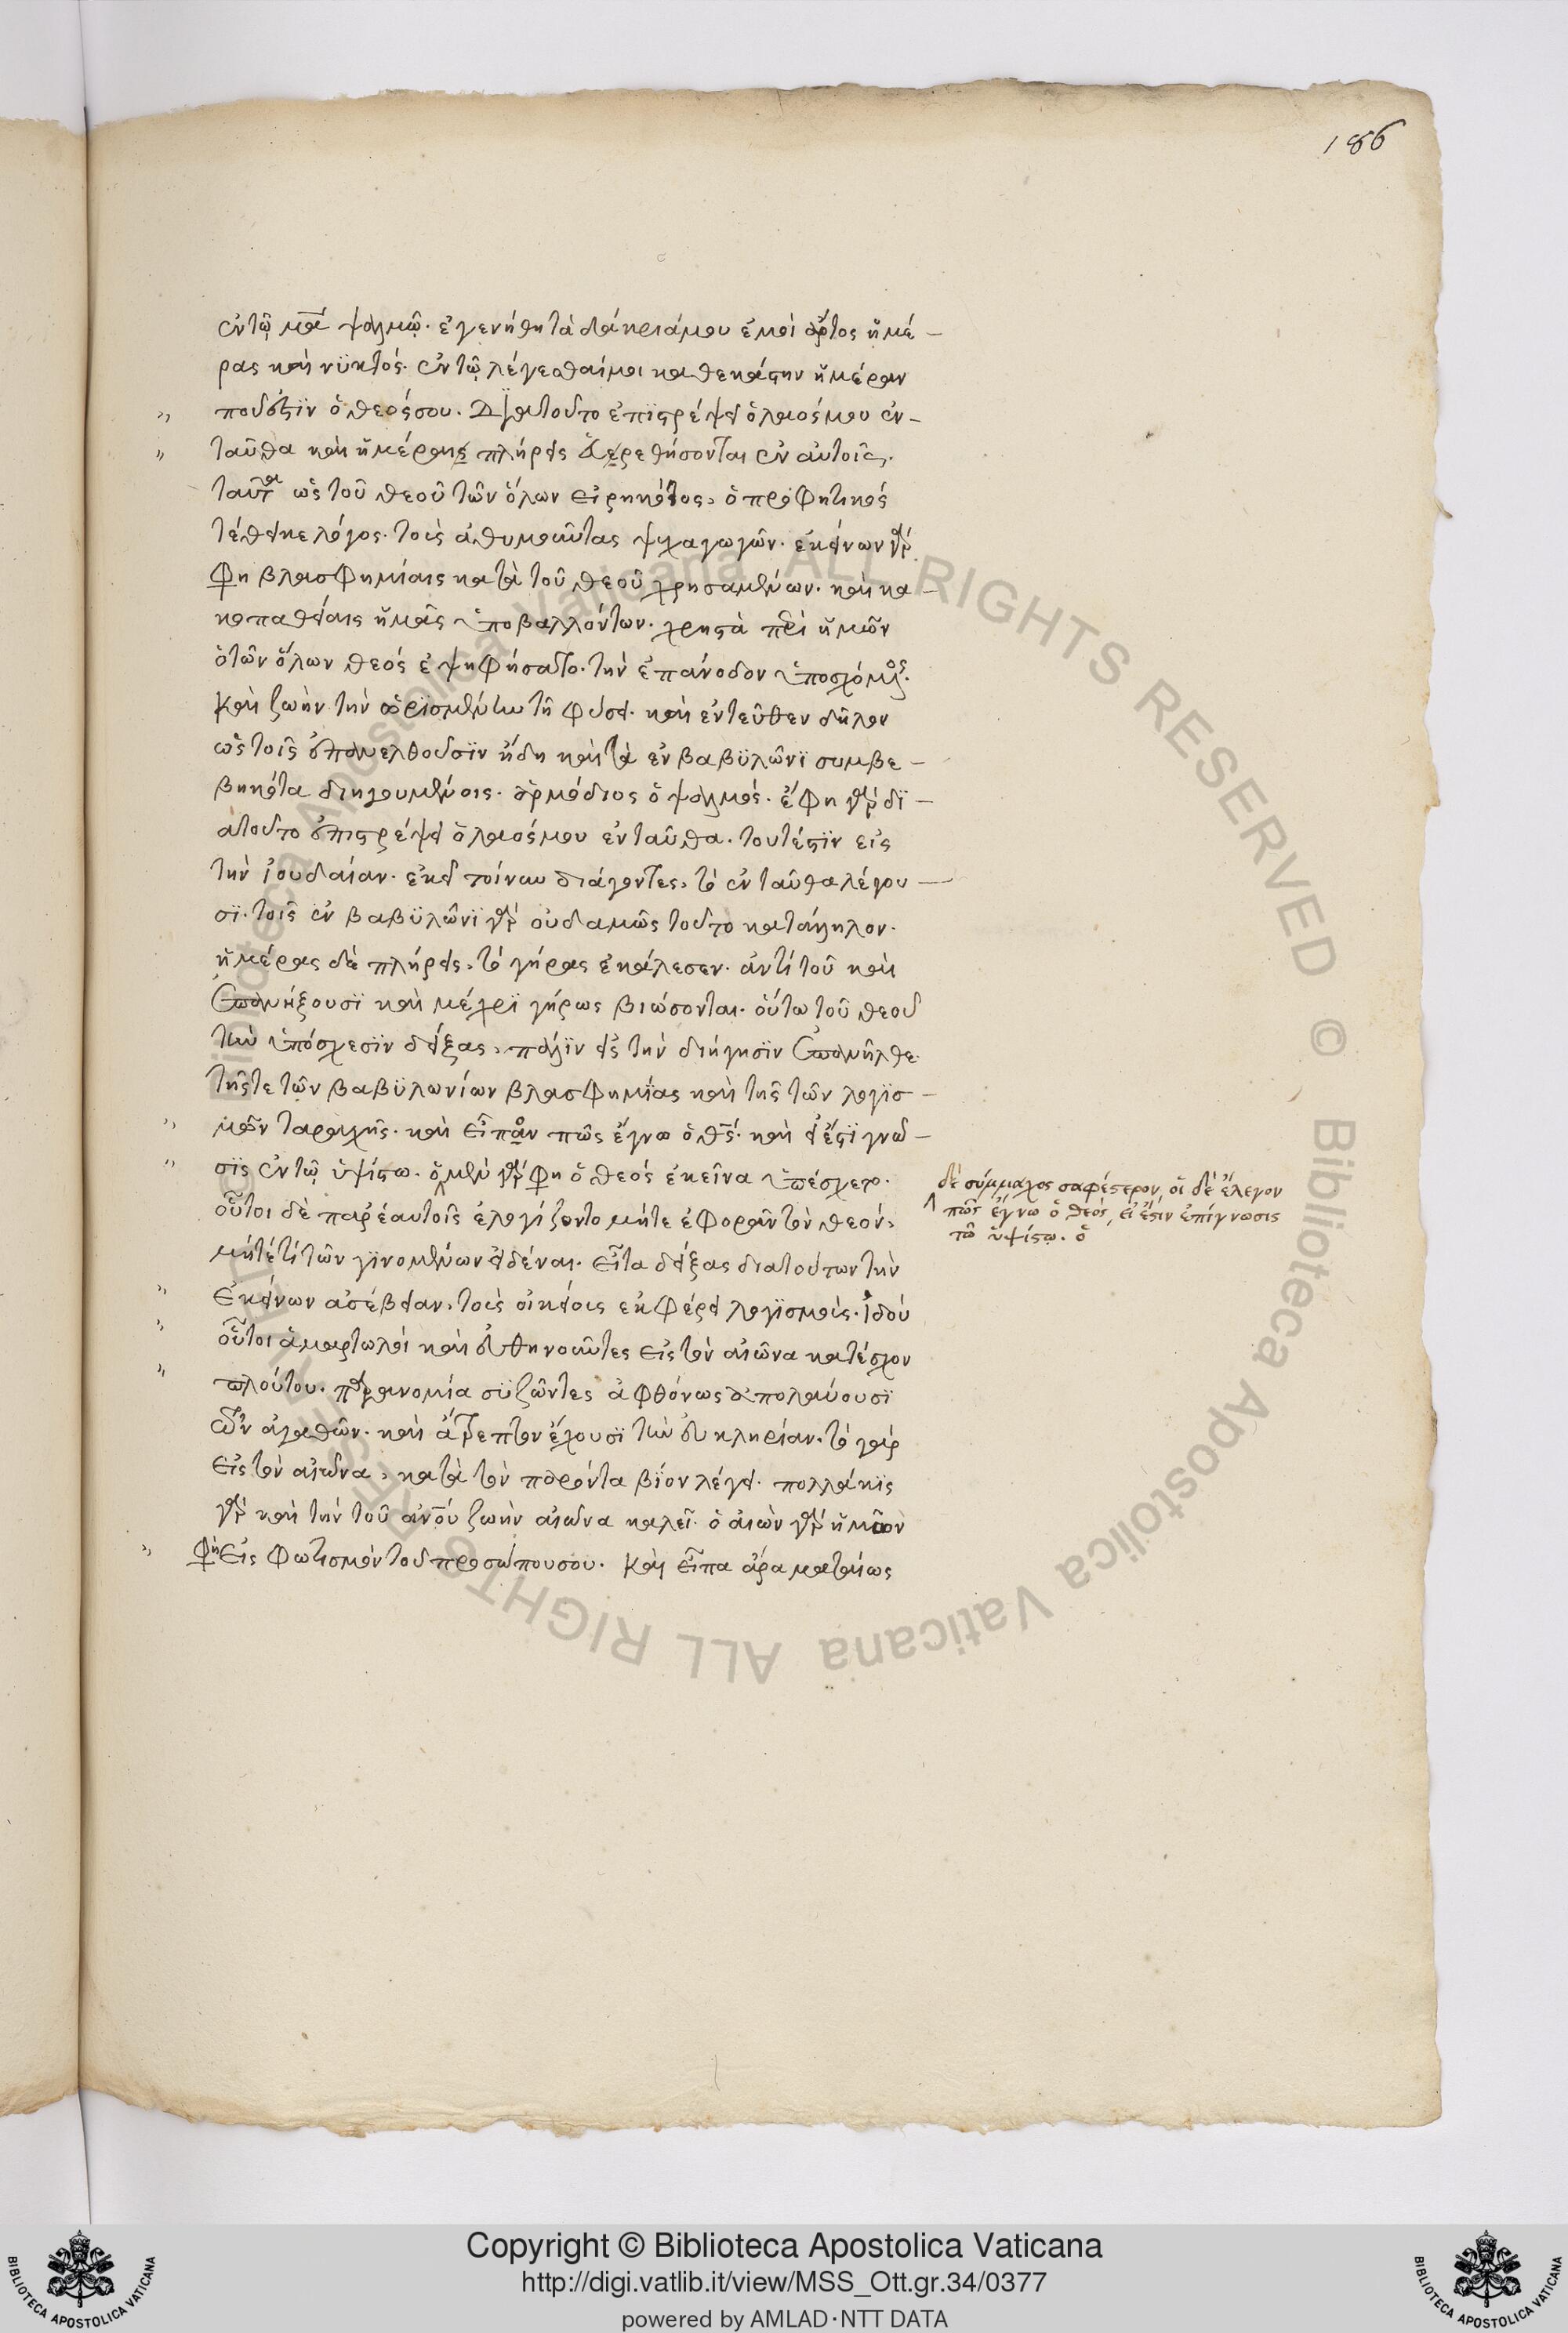 186
ἐν τῷ μα ψαλμῷ. ἐγενήθη τὰ δάκριά μου ἐμοὶ ἄρτος ἡμέ-
ρας καὶ νϋκτός. ἐν τῷ λέγεσθαί μοι καθεκάστην ἡμέραν
ποῦ ἐστϊν ὁ θεός σου. Διατοῦτο ἐπϊστρέψει ὁ λαός μου ἐν-
ταῦθα καὶ ἡμέραις πλήρεις εὑρεθήσονται ἐν αὐτοῖς.
ταῦτα ὡς τοῦ θεοῦ τῶν ὅλων εἰρηκότος, ὁ προφητικός
τέθεικε λόγος. τοὺς ἀθυμοῦντας ψυχαγωγῶν. ἐκείνων γάρ
φη βλασφημίαις κατὰ τοῦ θεοῦ χρησαμένων. καὶ κα-
κοπαθείαις ἡμᾶς ὑποβαλλόντων. χρηστὰ περὶ ἡμῶν
ὁ τῶν ὅλων θεός ἐψηφήσατο. τὴν ἐπάνοδον ὑποσχόμενος.
καὶ ζωὴν τὴν ὁρϊσμένην τῇ φύσει. καὶ ἐντεῦθεν δῆλον
ὡς τοῖς ἐπανελθοῦσϊν ἤδη καὶ τὰ ἐν βαβϋλῶνϊ συμβε-
βηκότα διηγουμένοις. ἁρμόδιος ὁ ψαλμός. ἔφη γάρ δϊ-
ατοῦτο ἐπιστρέψει ὁ λαός μου ἐνταῦθα. τουτέστϊν εἰς
τὴν ἰουδαίαν. ἐκεῖ τοίνυν διάγοντες, τὸ ἐνταῦθα λέγου-
σϊ. τοῖς ἐν βαβϋλῶνϊ γάρ οὐδαμῶς τοῦτο κατάλληλον.
ἡμέρας δὲ πλήρεις, τὸ γήρας ἐκάλεσεν. ἀντὶ τοῦ καὶ
ἐπανήξουσϊ καὶ μέχρϊ γήρως βιώσονται. οὕτω τοῦ θεοῦ
τὴν ὑπόσχεσϊν δείξας, πάλϊν εἰς τὴν διήγησϊν ἐπανῆλθε
τῆς τε τῶν βαβϋλωνίων βλασφημίας καὶ τῆς τῶν λογϊσ-
μῶν ταραχῆς. καὶ εἶπον πῶς ἔγνω ὁ θς. καὶ εἰ ἔστϊ γνῶ-
σϊς ἐν τῷ ὑψίστω. ὁ μὲν γάρ φη ὁ θεός ἐκεῖνα ὑπέσχετο.
οὗτοι δὲ παρ' ἑαυτοῖς ἐλογίζοντο μήτε ἐφορᾶν τὸν θεόν,
μήτέ τι τῶν γϊνομένων εἰδέναι. εἶτα δείξας διατούτων τὴν
ἐκείνων ἀσέβειαν, τοὺς οἰκείους ἐκφέρει λογϊσμούς. ἰδού
οὗτοι ἁμαρτωλοί καὶ εὐθηνοῦντες εἰς τὸν αἰῶνα κατέσχον
πλούτου. παρανομία σϋζῶντες ἀφθόνως ἀπολαύουσϊ
τῶν ἀγαθῶν. καὶ ἄτρεπτον ἔχουσϊ τὴν εὐκληρίαν. τὸ γάρ
εἰς τὸν αἰῶνα, κατὰ τὸν παρόντα βίον λέγει. πολλάκϊς
γάρ καὶ τὴν τοῦ ἀνου ζωὴν αἰῶνα καλεῖ. ὁ αἰὼν γάρ ἡμῶν
φη εἰς φωτισμόν τοῦ προσώπου σου. καὶ εἶπα ἄρα ματαίως
δὲ σύμμαχος σαφέστερον, οἱ δὲ ἔλεγον
πῶς ἔγνω ὁ θεός, εἰ ἔστιν ἐπίγνωσις
τῶ ὑψίστῳ. ὁ
Copyright © Biblioteca Apostolica Vaticana
http://digi.vatlib.it/view/MSS_Ott.gr.34/0377
powered by AMLAD·NTT DATA
BIBLIOTECA APOSTOLICA VATICANA
BIBLIOTECA APOSTOLICA VATICANA
© Biblioteca Apostolica Vaticana ALL RIGHTS RESERVED © Biblioteca Apostolica Vaticana ALL RIGHTS RESERVED